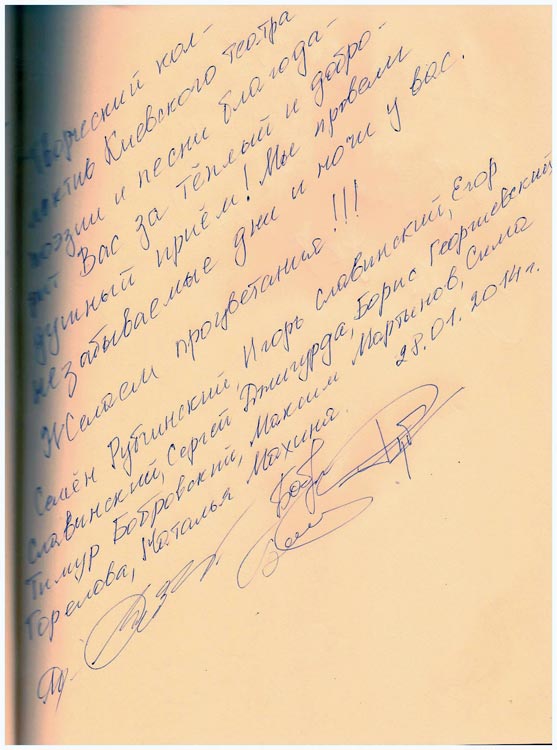 Творческий кол-
лектив Киевского театра
поэзии и песни благода-
рит Вас за тёплый и добро-
душный приём! Мы провели
незабываемые дни и ночи у вас.
Желаем процветания!!!
Семён Рубчинский, Игорь Славинский, Егор
Славинский, Сергей Джигурда, Борис Георгиевский,
Тимур Бобровский, Максим Мартынов, Сима
Горелова, Наталья Махина. 28.01.2014г.